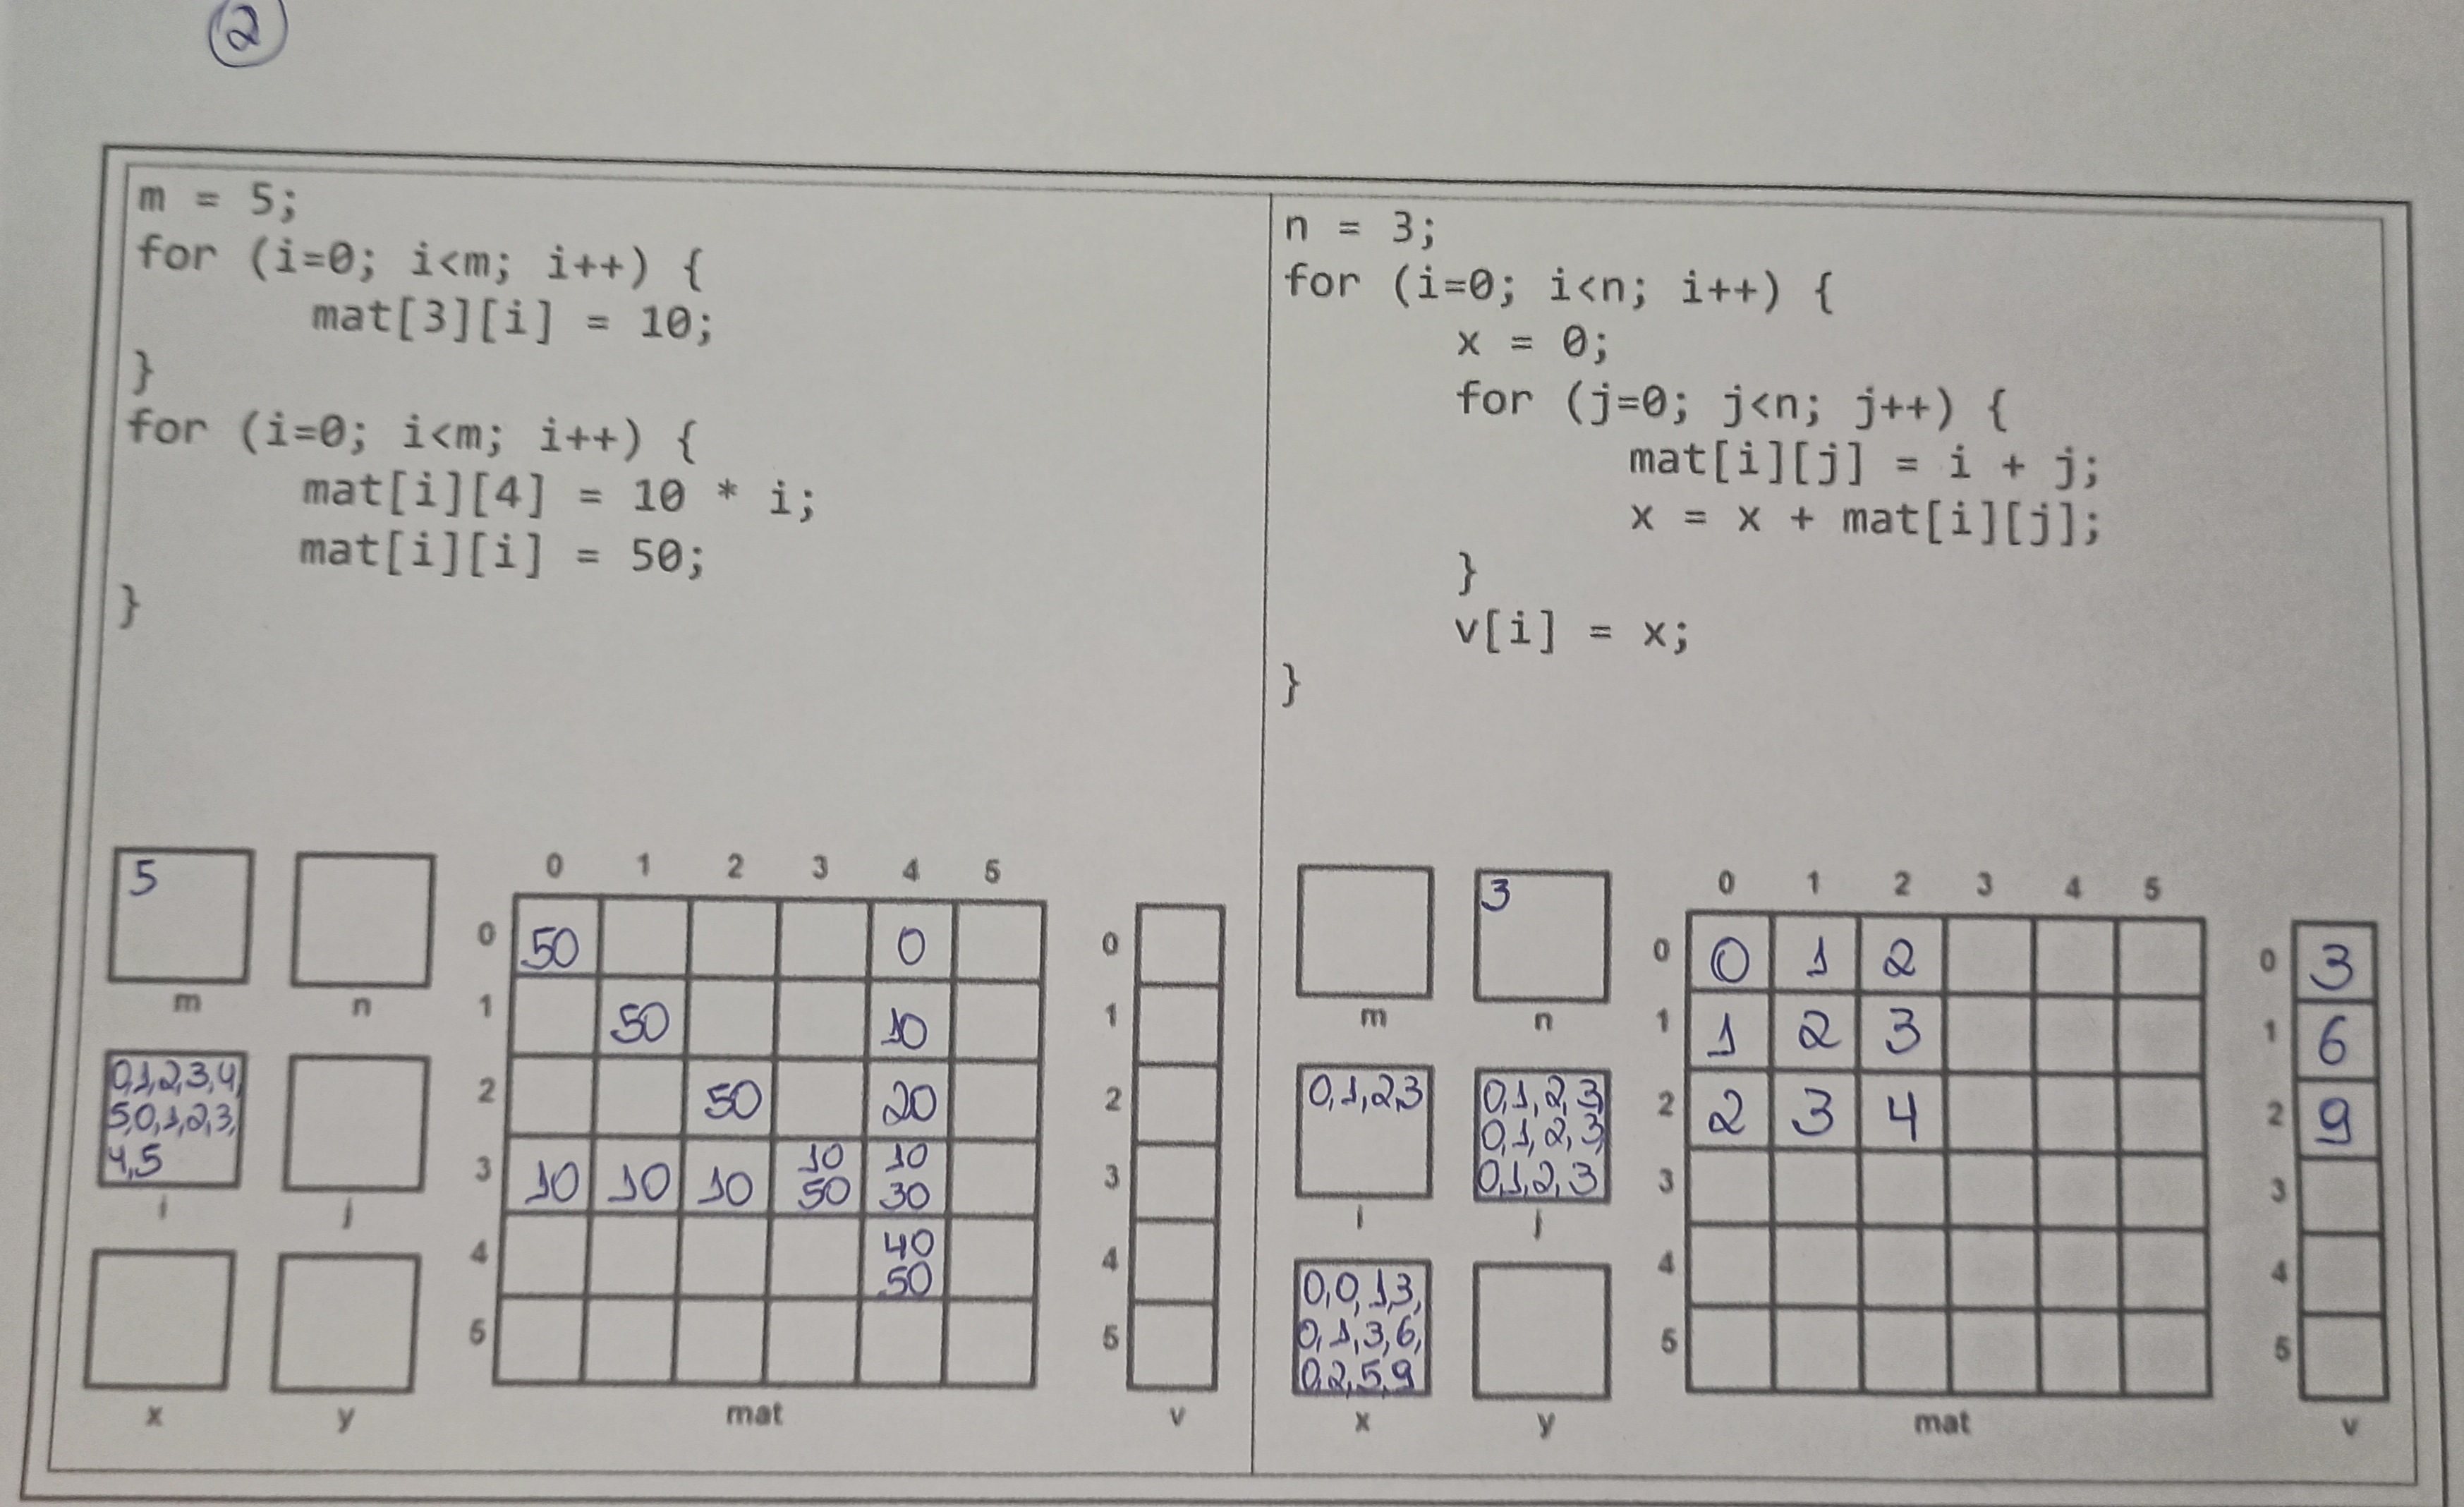 2
m = 5;
for (i=0; i<m; i++) {
mat[3][i] = 10;
}
for (i=0; i<m; i++) {
mat[i][4] = 10 * i;
mat[i][i] = 50;
}
5
m
n
0,1,2,3,4,
5,0,1,2,3,
4,5
i
j
x
y
0 1 2 3 4 5
0 50 0
1 50 10
2 50 20
3 10 10 10 10 50 10 30
4 40 50
5
mat
0
1
2
3
4
5
v
n = 3;
for (i=0; i<n; i++) {
x = 0;
for (j=0; j<n; j++) {
mat[i][j] = i + j;
x = x + mat[i][j];
}
v[i] = x;
}
m
3
n
0,1,2,3
i
0,1,2,3
0,1,2,3
0,1,2,3
j
0,0,1,3,
0,1,3,6,
0,2,5,9
x
y
0 1 2 3 4 5
0 0 1 2
1 1 2 3
2 2 3 4
3
4
5
mat
0 3
1 6
2 9
3
4
5
v